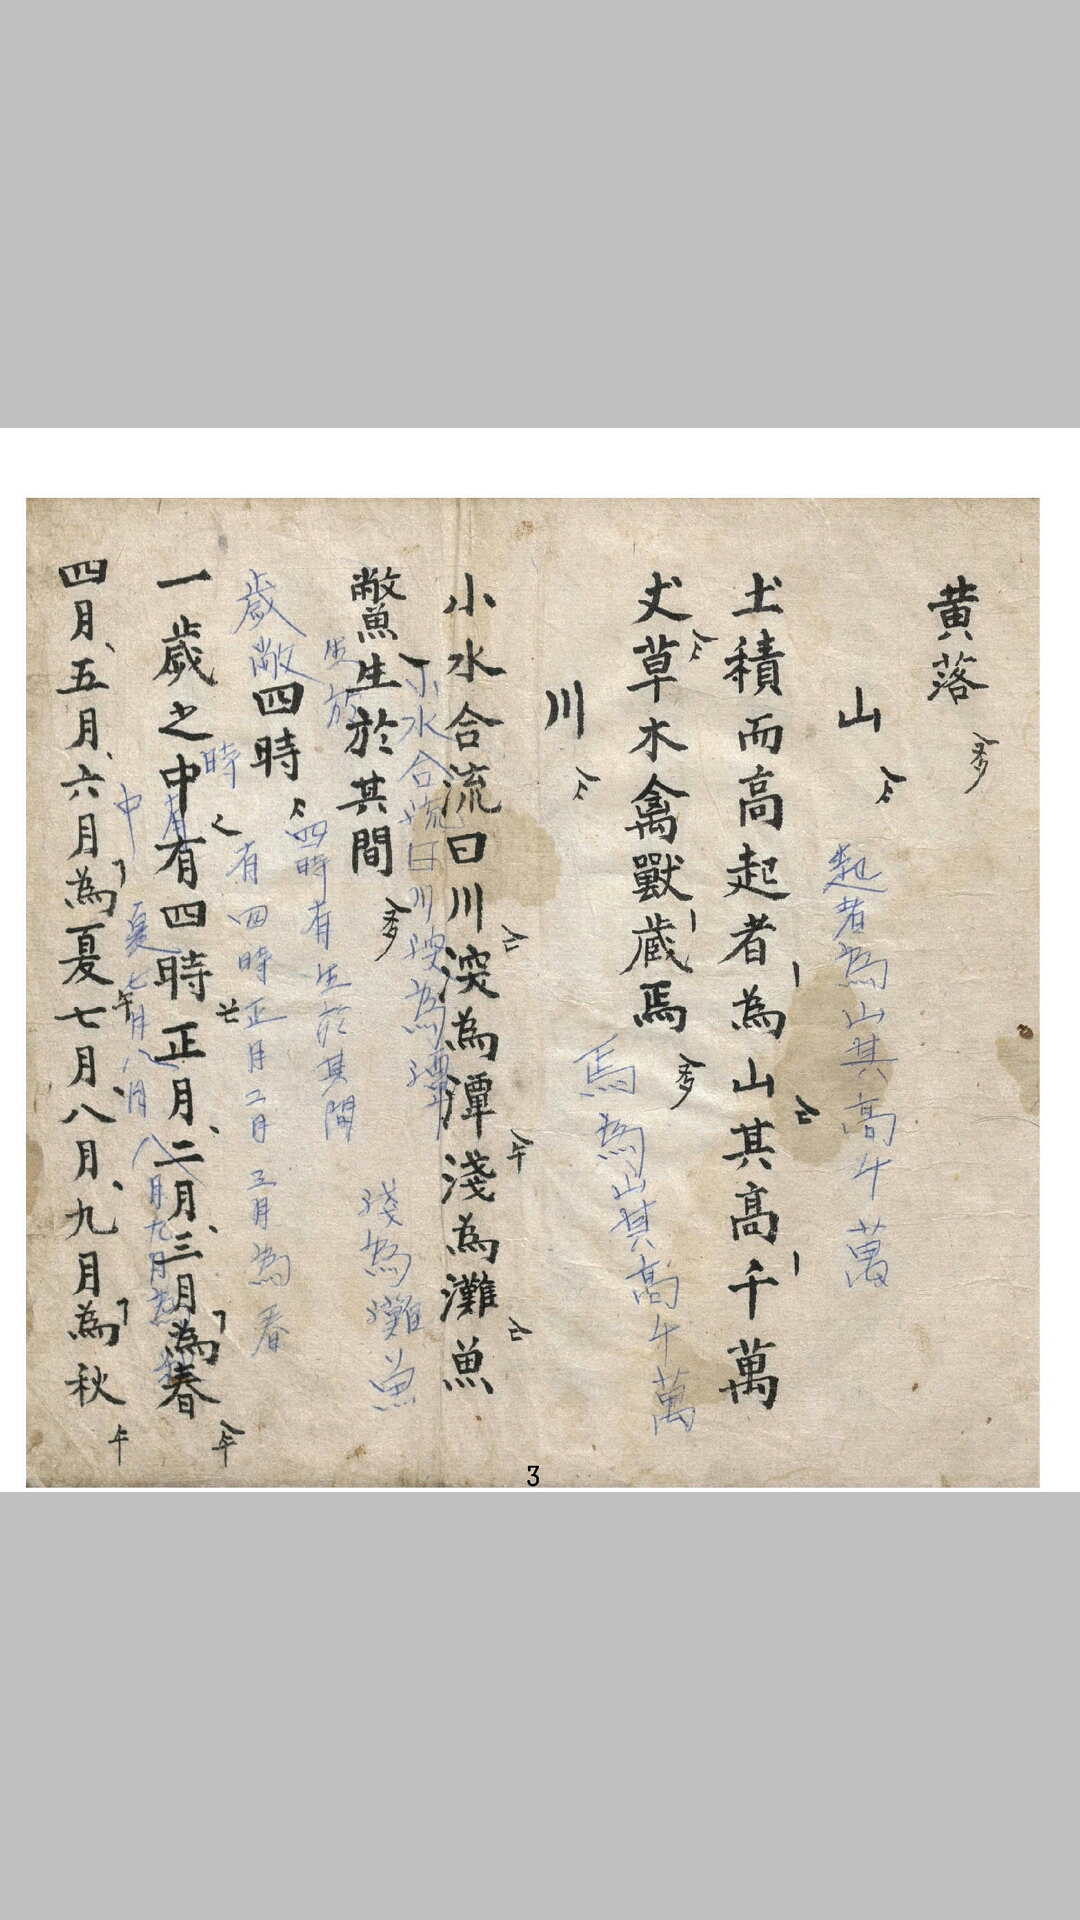 黄落
山
起者為山其高千萬
土積而高起者為山其高千萬
丈草木禽獸蔵焉
焉為山其高千萬
川
小水合流曰川深為潭淺為灘魚
小水合流曰川深為潭
淺為灘魚
鱉生於其間
生於
四時有生於其間
四時
歲敝
時有四時正月二月三月為春
一歲之中有四時正月、二月、三月為春
中有
夏七月八月
八月九月為秋
四月、五月、六月為夏七月八月、九月為秋
3